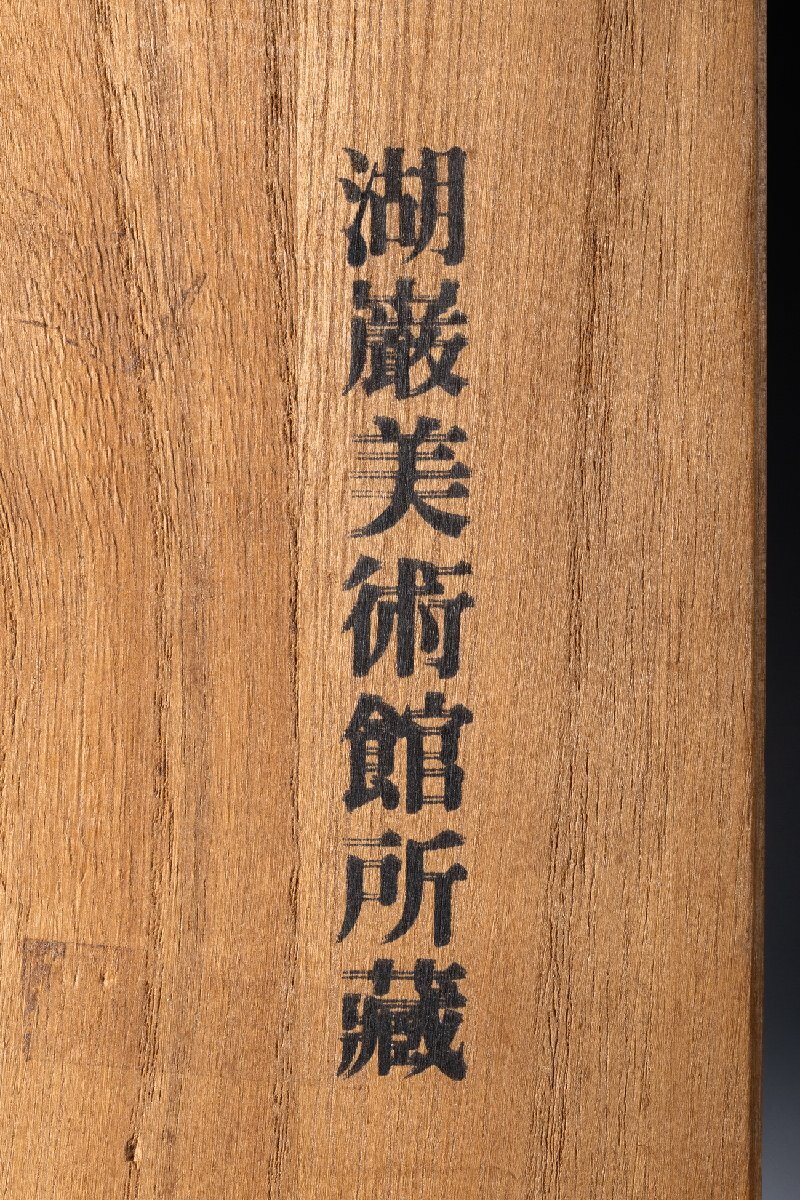 湖巖美術館所藏